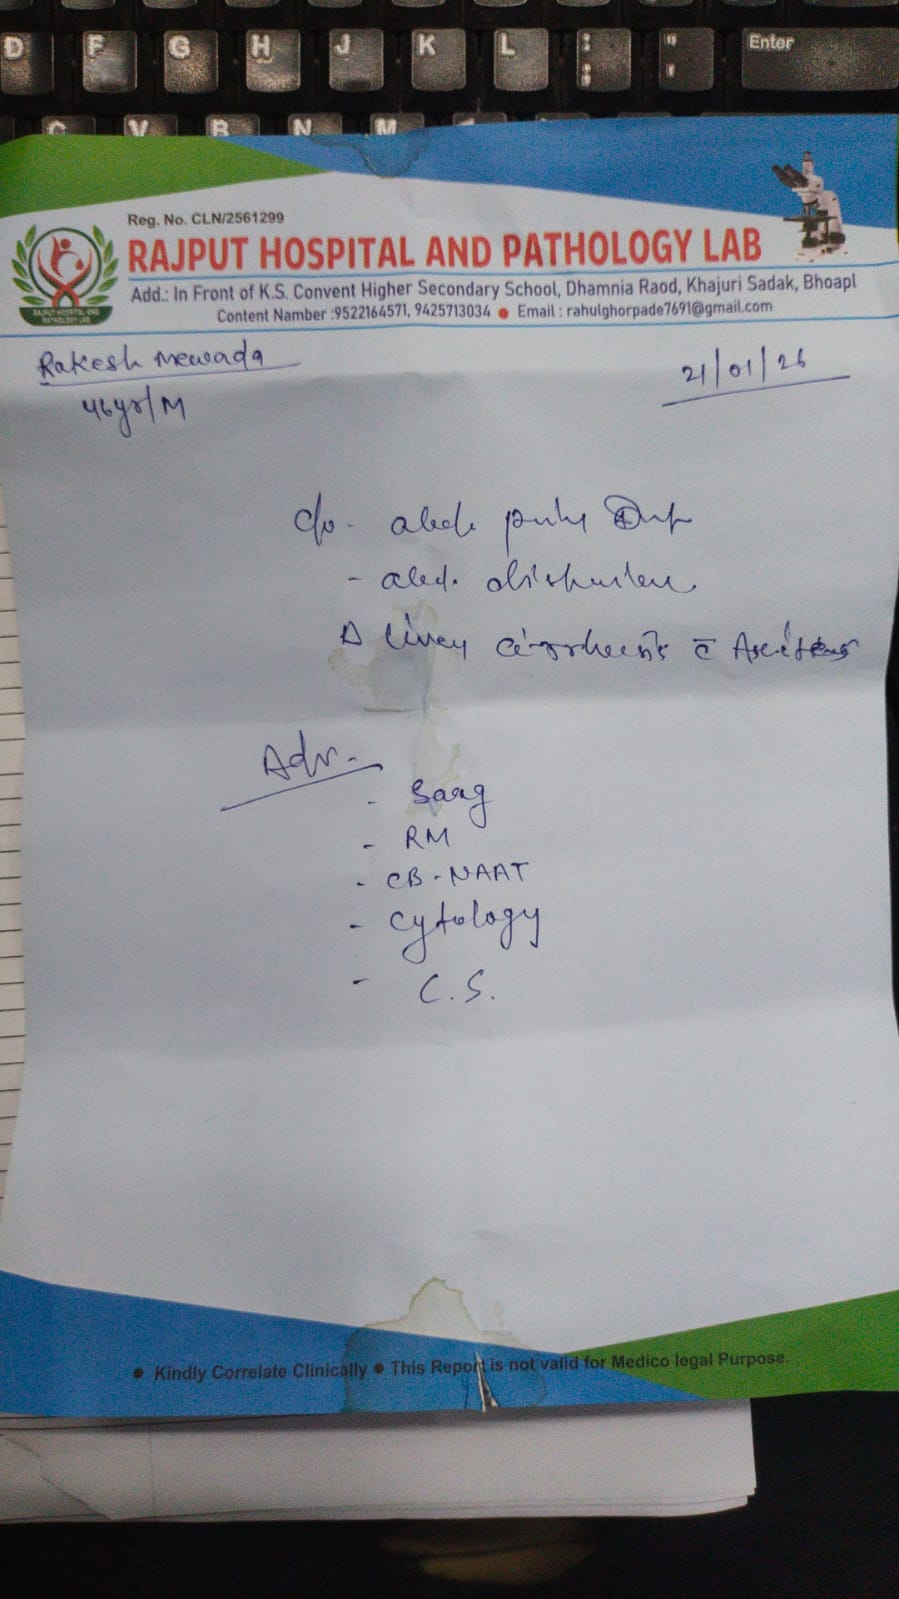 D F G H J K L : ; " ' Enter
C V B N M
Reg. No. CLN/2561299
RAJPUT HOSPITAL AND PATHOLOGY LAB
RAJPUT HOSPITAL AND PATHOLOGY LAB
Add.: In Front of K.S. Convent Higher Secondary School, Dhamnia Raod, Khajuri Sadak, Bhoapl
Content Namber :9522164571, 9425713034 ● Email : rahulghorpade7691@gmail.com
Rakesh Mewada
21/01/26
46yr/M
c/o - abd.
- abd.
Δ liver c̄ Ascites
Adv.
- Saag
- RM
- CB-NAAT
- cytology
- C.S.
● Kindly Correlate Clinically ● This Report is not valid for Medico legal Purpose.